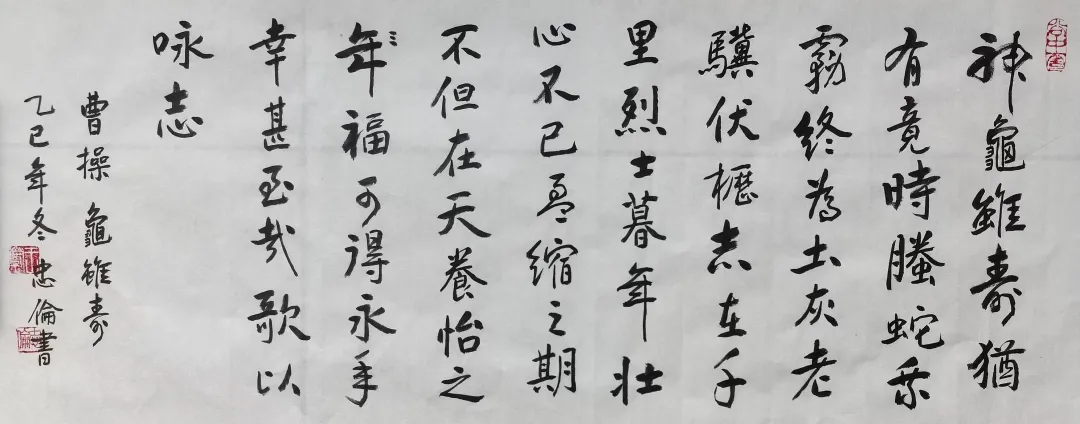 神龜雖壽猶
有竟時螣蛇乘
霧終為土灰老
驥伏櫪志在千
里烈士暮年壯
心不已盈縮之期
不但在天養怡之
年福可得永年
幸甚至哉歌以
咏志
曹操龜雖壽
乙巳年冬忠倫書